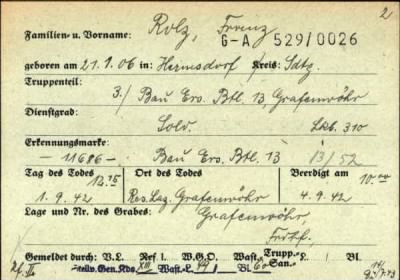 2
Familien- u. Vorname: Rolz, Franz
G-A 529/0026
geboren am 21.1.06 in: Hermsdorf Kreis:
Truppenteil: 3./ Bau Ers. Btl. 13, Grafenwöhr
Dienstgrad: Sold. 310
Erkennungsmarke: - 11686 - Bau Ers. Btl. 13 13/52
Tag des Todes Ort des Todes Beerdigt am
1.9.42 Res. Laz. Grafenwöhr 4.9.42
Lage und Nr. des Grabes: Grafenwöhr,
Frdhf.
Gemeldet durch: V.L. Ref. W.G.O. Wast. Trupp. San.
stellv. Gen. Kdo. XIII Wast. L.